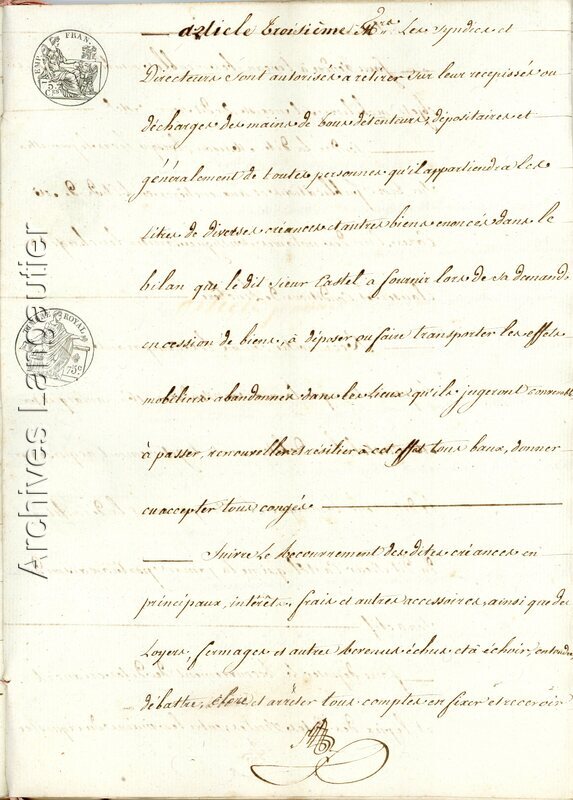 article troisième Les Syndics et
Directeurs sont autorisés a retirer sur leur recepissés ou
décharges des mains de tous détenteurs, dépositaires et
généralement de toutes personnes qu'il appartiendra les
titres de diverses créances et autres biens enoncés dans le
bilan que le dit Sieur Castel a fourni lors de sa demande
en cession de biens, à déposer ou faire transporter les effets
mobiliers abandonnés dans les lieux qu'ils jugeront convenable
à passer, renouveller et résilier à cet effet tous baux, donner
ou accepter tous congés
Suivre le recouvrement des dites créances en
principaux, intérêts, frais et autres accessoires, ainsi que des
Loyers, fermages et autres revenus échus et à échoir, entendre
débattre, clore et arrêter tous comptes en fixer et recevoir
EMP. FRANC
75 c
TIMBRE ROYAL
75c
Archives Langeutier